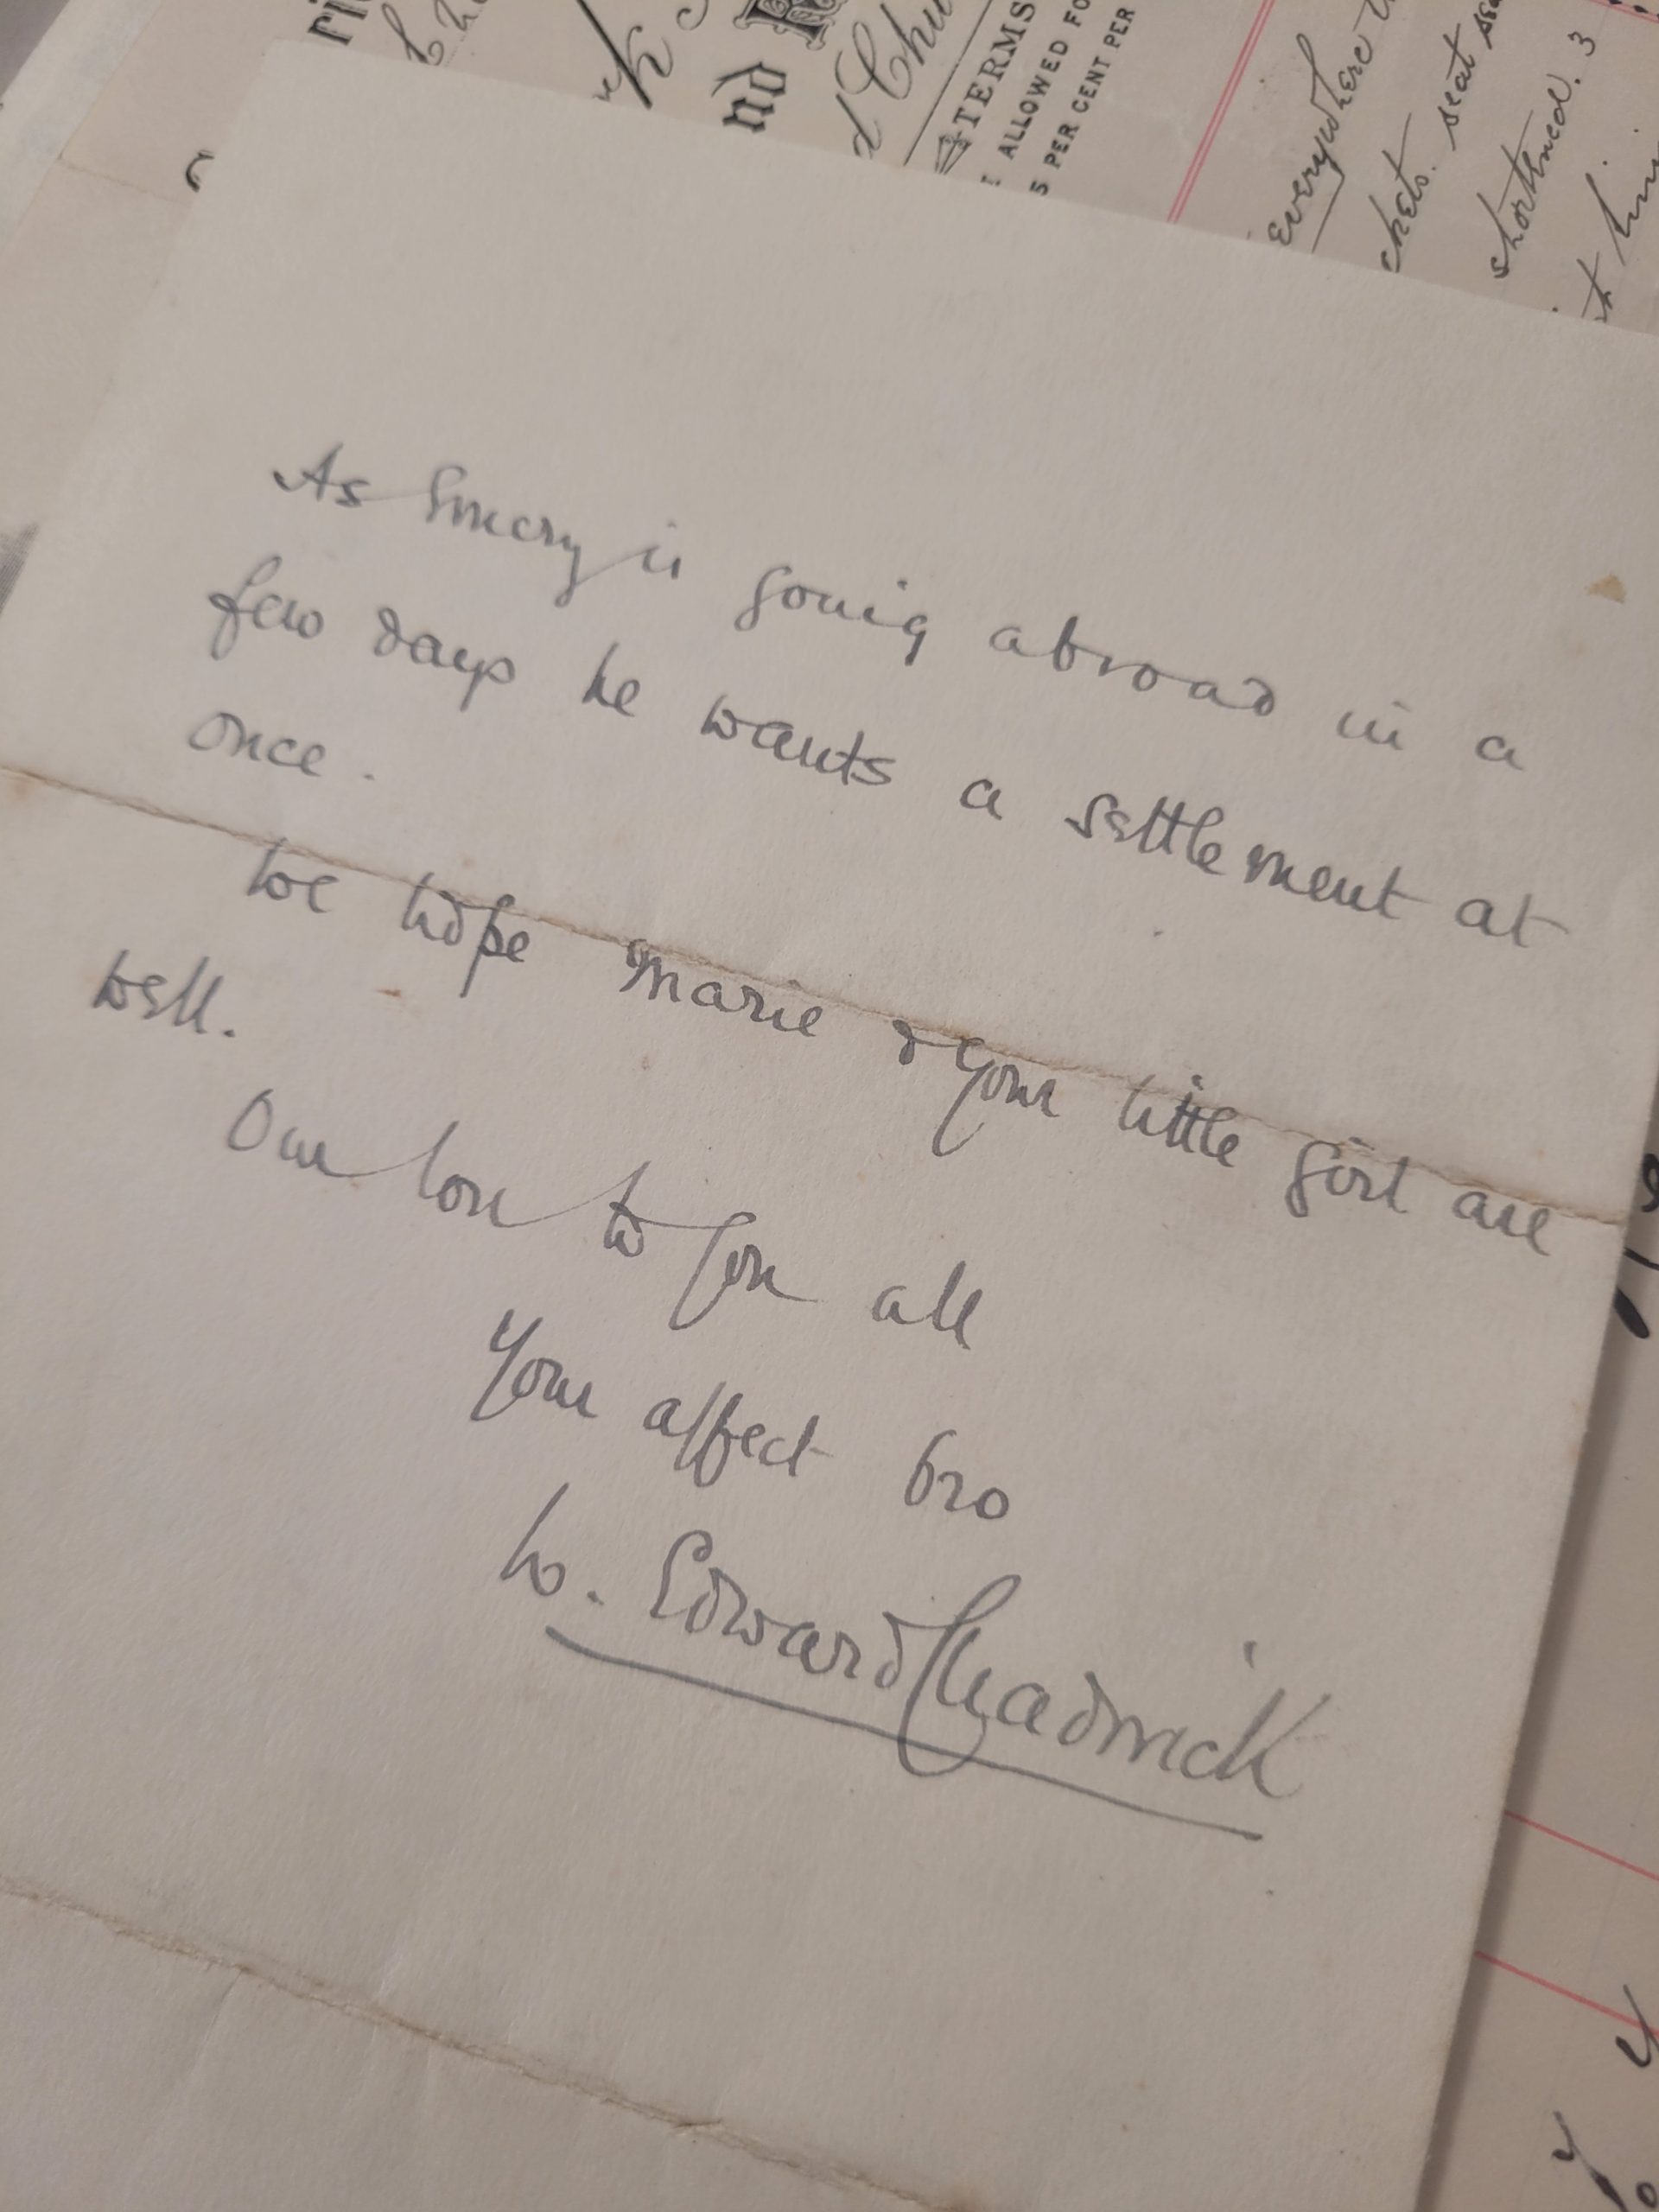 TERMS
ALLOWED FO
5 PER CENT PER
everywhere
seat
shortened. 3
As Emery is going abroad in a
few days he wants a settlement at
once.
We hope Marie & your little girl are
well.
Our love to you all
Your affect bro
W. Edward Chadwick